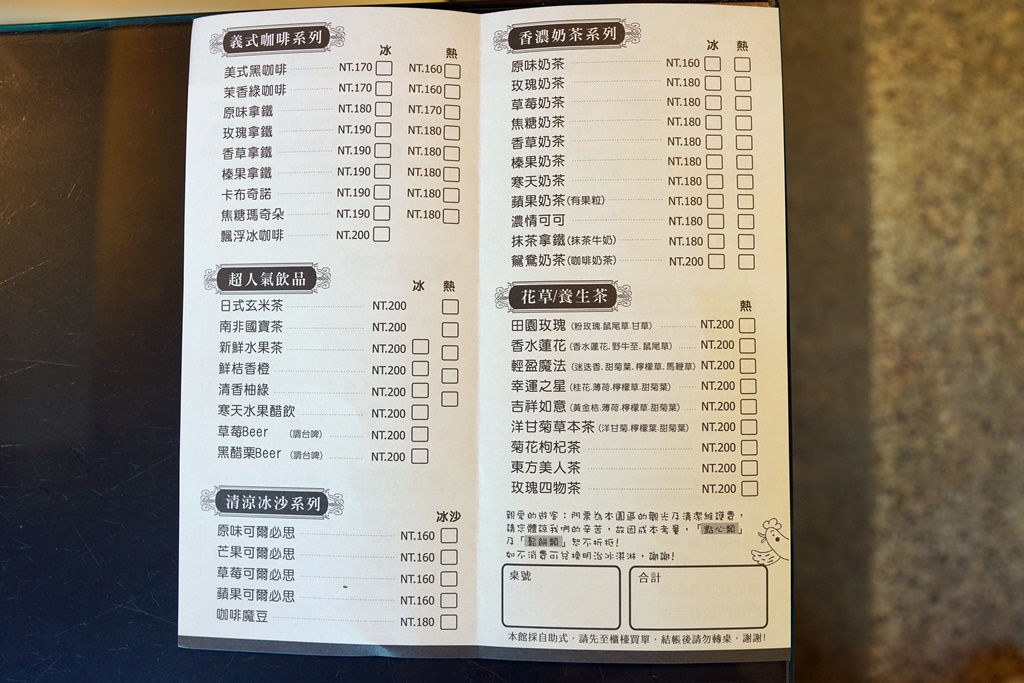 義式咖啡系列
冰 熱
美式黑咖啡 NT.170 NT.160
茉香綠咖啡 NT.170 NT.160
原味拿鐵 NT.180 NT.170
玫瑰拿鐵 NT.190 NT.180
香草拿鐵 NT.190 NT.180
榛果拿鐵 NT.190 NT.180
卡布奇諾 NT.190 NT.180
焦糖瑪奇朵 NT.190 NT.180
飄浮冰咖啡 NT.200
超人氣飲品
冰 熱
日式玄米茶 NT.200
南非國寶茶 NT.200
新鮮水果茶 NT.200
鮮桔香橙 NT.200
清香柚綠 NT.200
寒天水果醋飲 NT.200
草莓Beer (調台啤) NT.200
黑醋栗Beer (調台啤) NT.200
清涼冰沙系列
冰沙
原味可爾必思 NT.160
芒果可爾必思 NT.160
草莓可爾必思 NT.160
蘋果可爾必思 NT.160
咖啡魔豆 NT.180
香濃奶茶系列
冰 熱
原味奶茶 NT.160
玫瑰奶茶 NT.180
草莓奶茶 NT.180
焦糖奶茶 NT.180
香草奶茶 NT.180
榛果奶茶 NT.180
寒天奶茶 NT.180
蘋果奶茶(有果粒) NT.180
濃情可可 NT.180
抹茶拿鐵(抹茶牛奶) NT.180
鴛鴦奶茶(咖啡奶茶) NT.200
花草/養生茶
熱
田園玫瑰 (粉玫瑰.鼠尾草.甘草) NT.200
香水蓮花 (香水蓮花.野牛至.鼠尾草) NT.200
輕盈魔法 (迷迭香.甜菊葉.檸檬草.馬鞭草) NT.200
幸運之星 (桂花.薄荷.檸檬草.甜菊葉) NT.200
吉祥如意 (黃金桔.薄荷.檸檬草.甜菊葉) NT.200
洋甘菊草本茶 (洋甘菊.檸檬葉.甜菊葉) NT.200
菊花枸杞茶 NT.200
東方美人茶 NT.200
玫瑰四物茶 NT.200
親愛的遊客：門票為本園區的觀光及清潔維護費，
請您體諒我們的辛苦，故因成本考量，「點心類」
及「鬆餅類」恕不折抵！
如不消費可兌換明治冰淇淋，謝謝！
桌號 合計
本館採自助式，請先至櫃檯買單，結帳後請勿轉桌，謝謝！